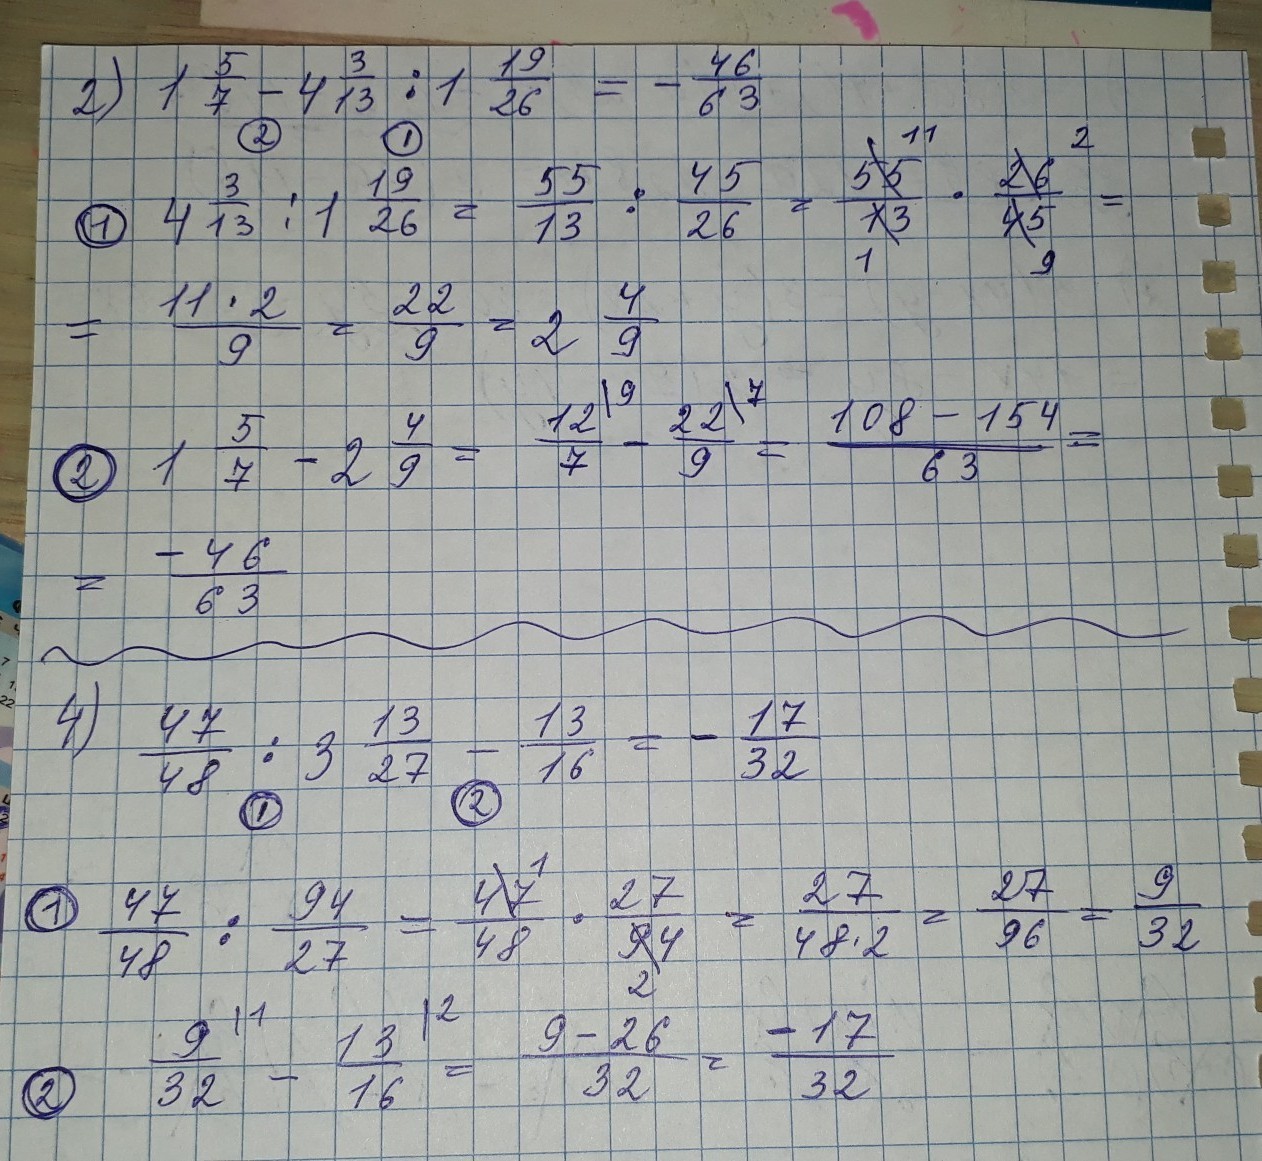 2) 1 5/7 - 4 3/13 : 1 19/26 = - 46/63
② ①
① 4 3/13 : 1 19/26 = 55/13 : 45/26 = 55/13 · 26/45 =
11 2
1 9
= 11·2/9 = 22/9 = 2 4/9
② 1 5/7 - 2 4/9 = 12/7 \9 - 22/9 \7 = 108 - 154/63 =
= -46/63
4) 47/48 : 3 13/27 - 13/16 = - 17/32
① ②
① 47/48 : 94/27 = 47/48 · 27/94 = 27/48·2 = 27/96 = 9/32
1
2
② 9/32 |1 - 13/16 |2 = 9 - 26/32 = -17/32